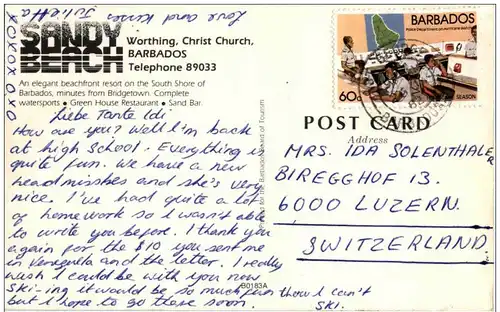 Love and kisses
Julietta
XOXOXOXO
SANDY
BEACH
Worthing, Christ Church,
BARBADOS
Telephone 89033
An elegant beachfront resort on the South Shore of
Barbados, minutes from Bridgetown. Complete
watersports • Green House Restaurant • Sand Bar.
Liebe Tante Idi
How are you? Well I'm back
at high school. Everything is
quite fun. We have a new
head misstres and she's very
nice. I've had quite a lot
of homework so I wasn't able
to write you before. I thank you
again for the $10 you sent me
in Venezuela and the letter. I really
wish I could be with you now
ski-ing it would be so much fun thow I can't
but I hope to go there soon. ski.
Barbados Board of Tourism
B0183A
BARBADOS
60c
SEASON
POST CARD
Address
MRS. IDA SOLENTHALER
BIREGGHOF 13.
6000 LUZERN.
SWITZERLAND.